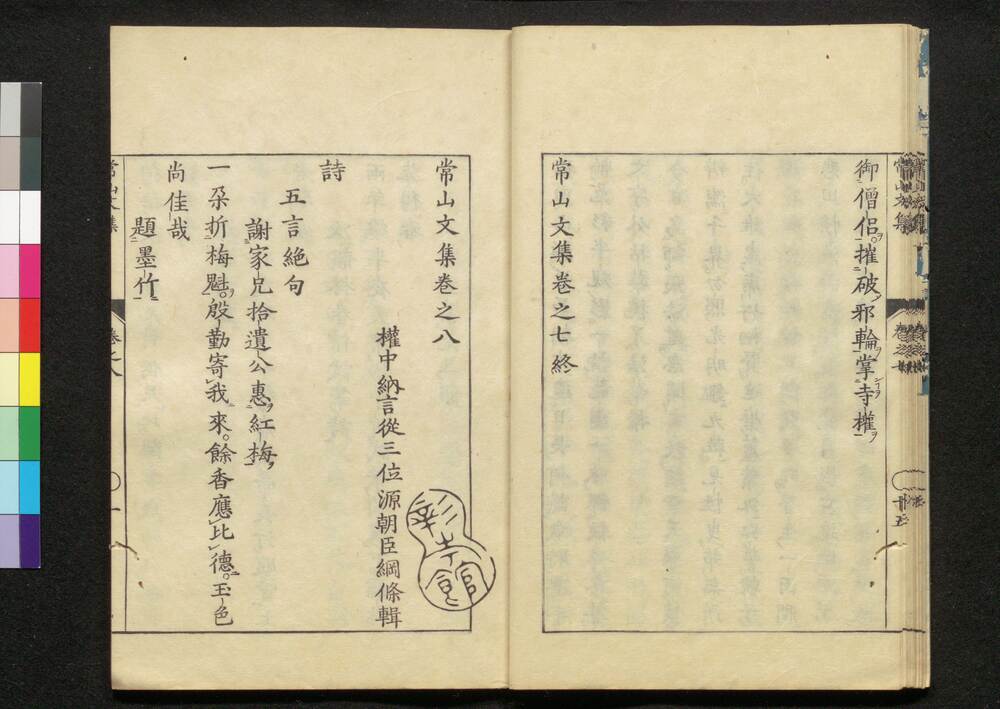 常山文集
卷之七
十五
御僧侶。摧破邪輪掌寺權
常山文集卷之七終
常山文集卷之八
權中納言從三位源朝臣綱條輯
彰考館
詩
五言絶句
謝家兄拾遺公惠紅梅
一朶折梅魁。殷勤寄我來。餘香應比德。玉色
尚佳哉
題墨竹
常山文集
卷之八
一